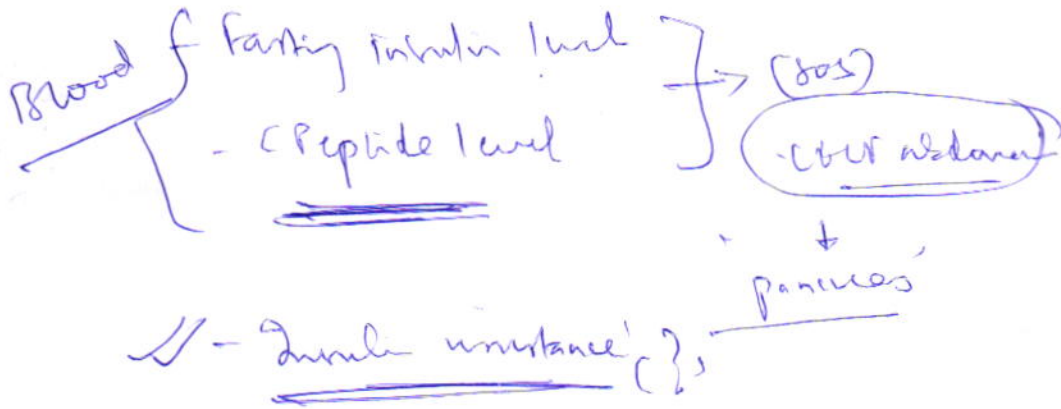 Blood { Fasting insulin level
→ (SOS)
- C Peptide level
CECT abdomen
↓
'pancreas'
- Insulin resistance (?)